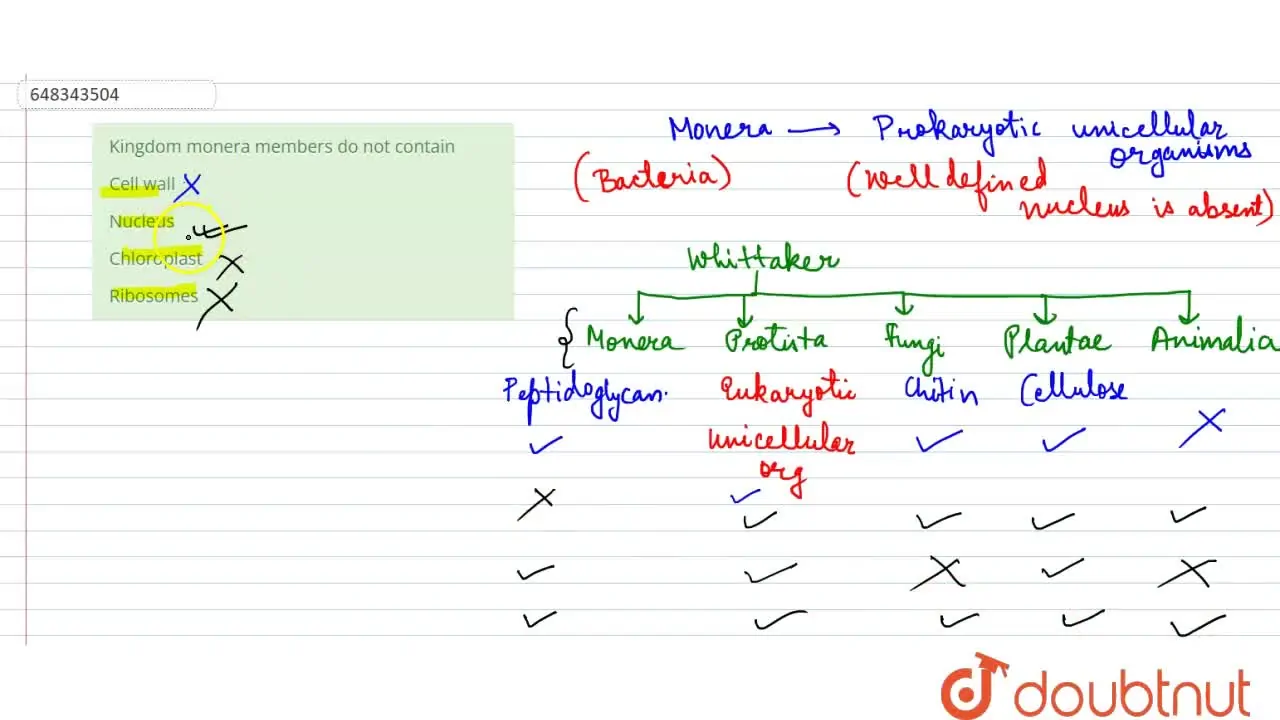 648343504
Kingdom monera members do not contain
Cell wall X
Nucleus ✓
Chloroplast X
Ribosomes X
Monera → Prokaryotic unicellular
organisms
(Bacteria) (Well defined
nucleus is absent)
Whittaker
{ Monera Protista Fungi Plantae Animalia
Peptidoglycan. Eukaryotic Chitin Cellulose X
✓ unicellular ✓ ✓
org
X ✓
✓ ✓ ✓ ✓
✓ ✓ X ✓ X
✓ ✓ ✓ ✓ ✓
doubtnut